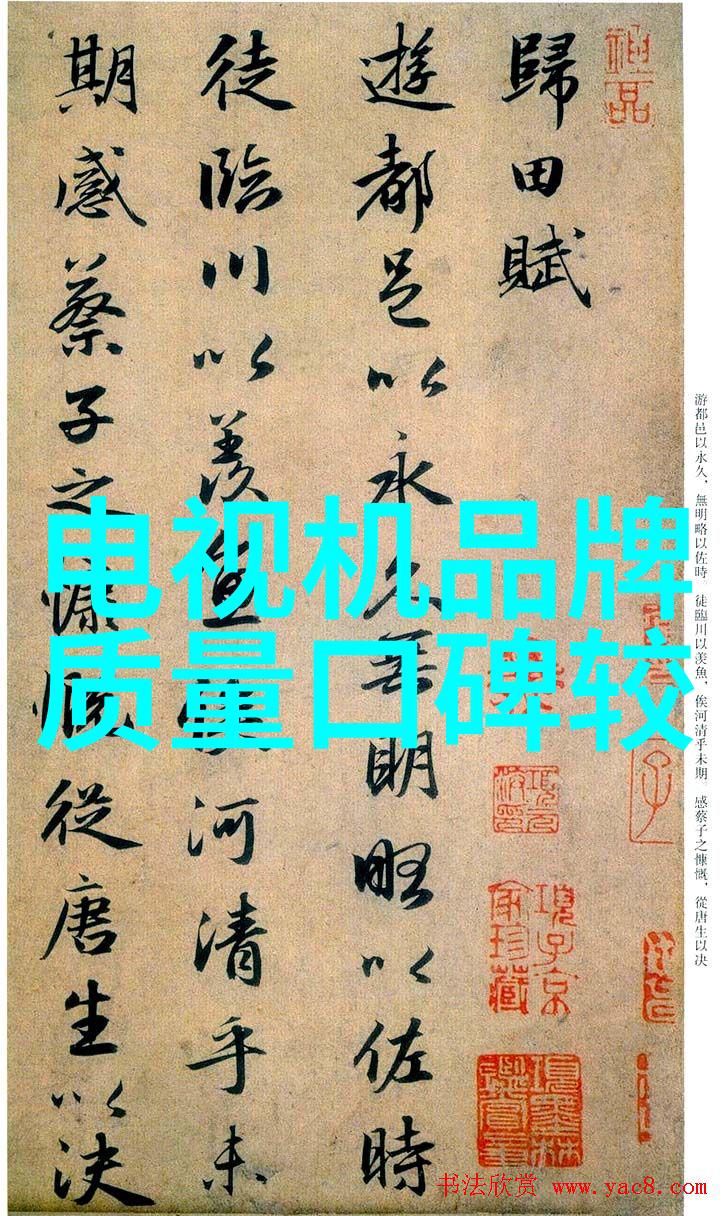 歸田賦
遊都邑以永久無明略以佐時
徒臨川以羨魚俟河清乎未
期感蔡子之慷慨從唐生以決
电视机品牌
质量口碑较
游都邑以永久，無明略以佐時。徒臨川以羨魚，俟河清乎未期。感蔡子之慷慨，從唐生以决
神品
項子京家珍藏
項墨林鑑賞章
书法欣赏 www.yac8.com